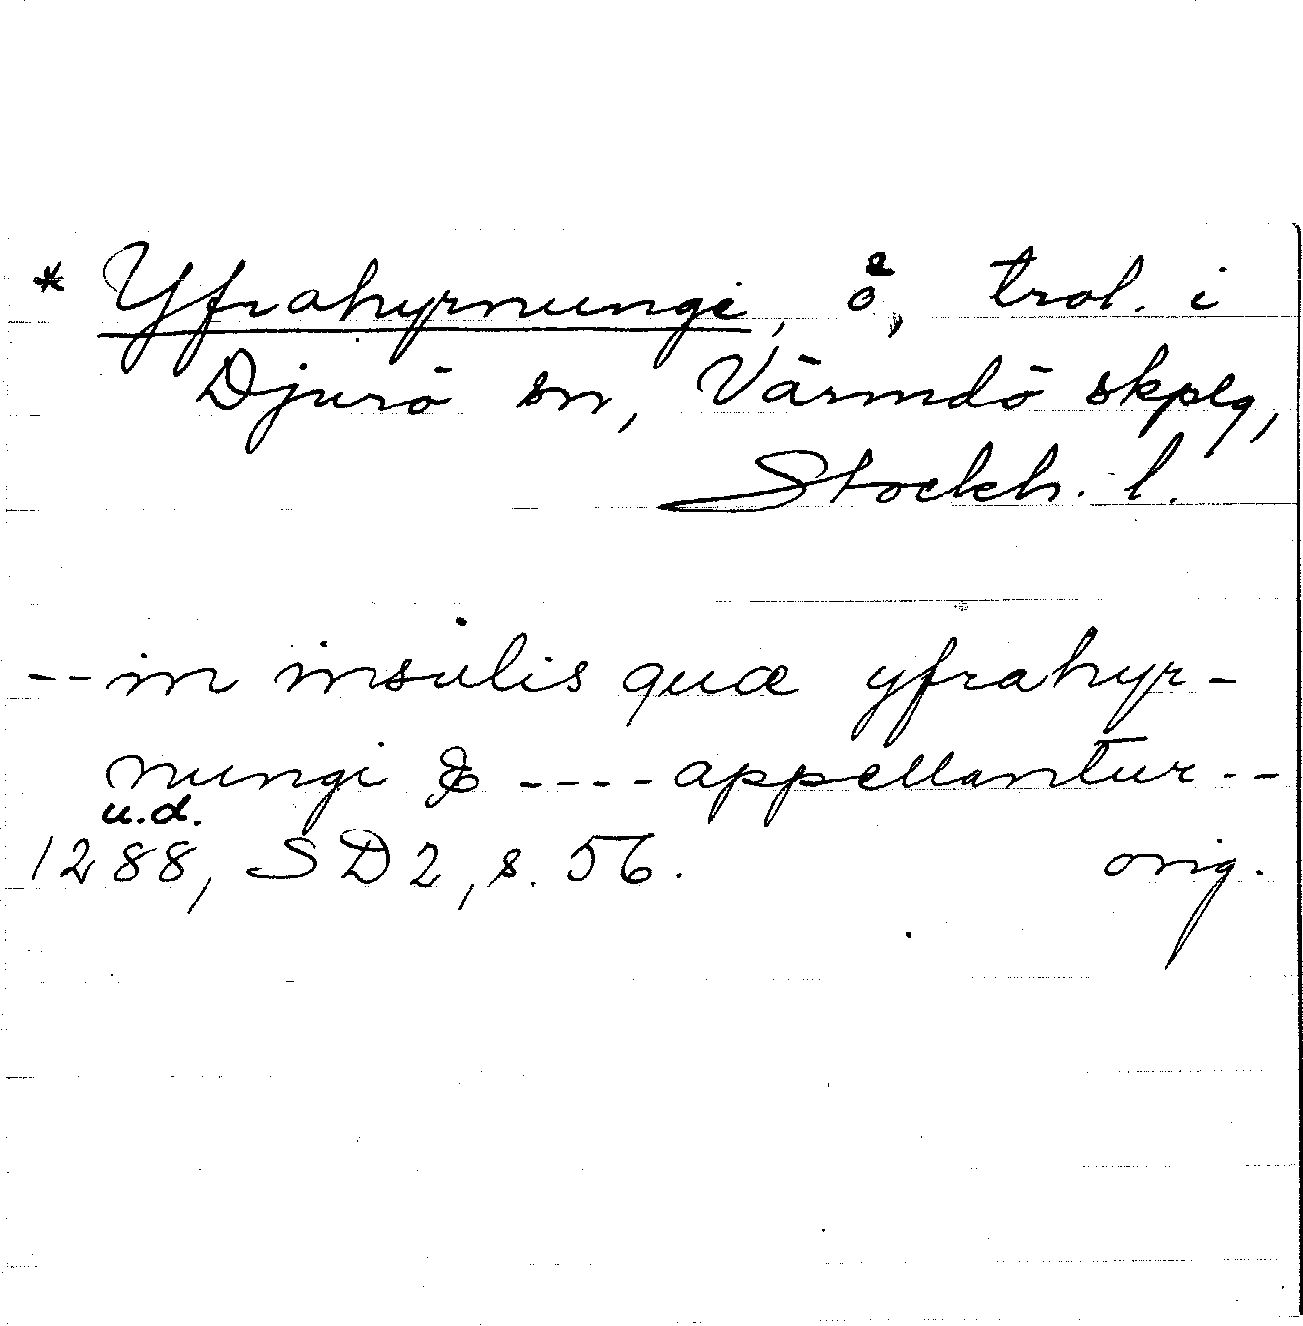 * Yfrahyrnungi, ö, trol. i
Djurö sn, Värmdö skplg,
Stockh. l.
-- in insulis quæ yfrahyr-
nungi & ---- appellantur --
u.d.
1288, SD 2, s. 56. orig.